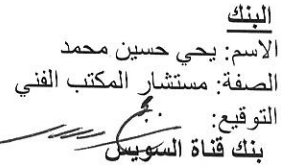 البنك
الاسم: يحي حسين محمد
الصفة: مستشار المكتب الفني
التوقيع:
بنك قناة السويس